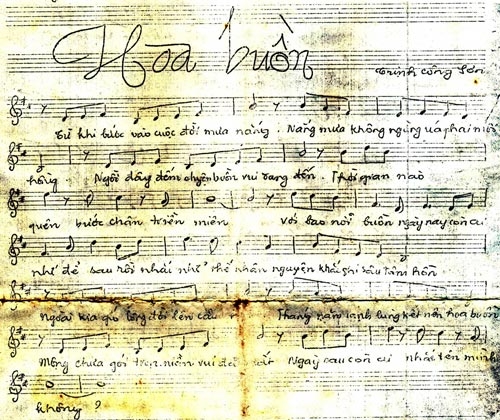 Hoa buồn
Trịnh Công Sơn
Từ khi bước vào cuộc đời mưa nắng. Nắng mưa không ngừng úa phai niềm
hồng Ngồi đây đếm chuyện buồn vui đang đến. Thời gian nào
quên bước chân triền miên với bao nỗi buồn ngày nay còn ai
nhớ để sau rồi nhái như thế nhân nguyện khắc ghi sâu tâm hồn
Ngoài kia gió lộng đồi lên cao Tháng năm lạnh lùng kết nên hoa buồn
Mộng chưa gói tròn niềm vui đã tắt Ngày sau còn ai nhắc tên mình
không ?